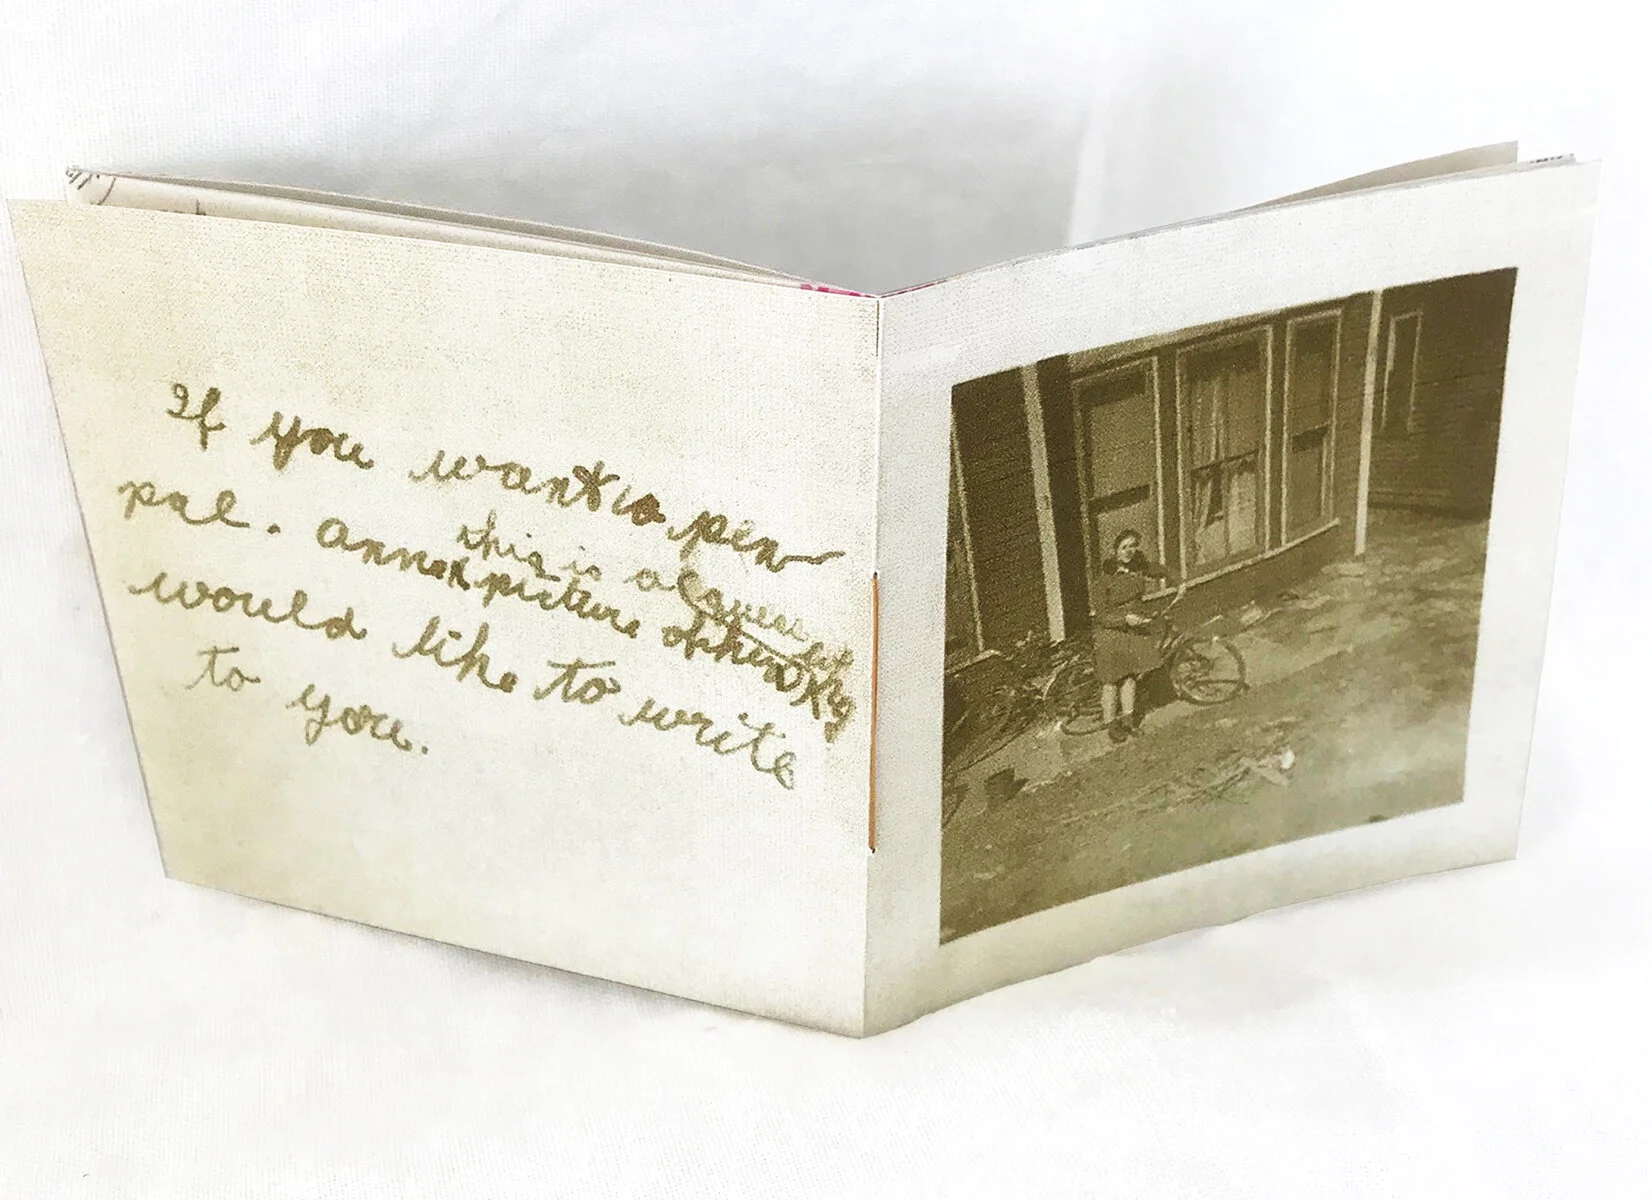 If you want a pen
pal. Anna
this is a
(picture of her)
would like to write
to you.